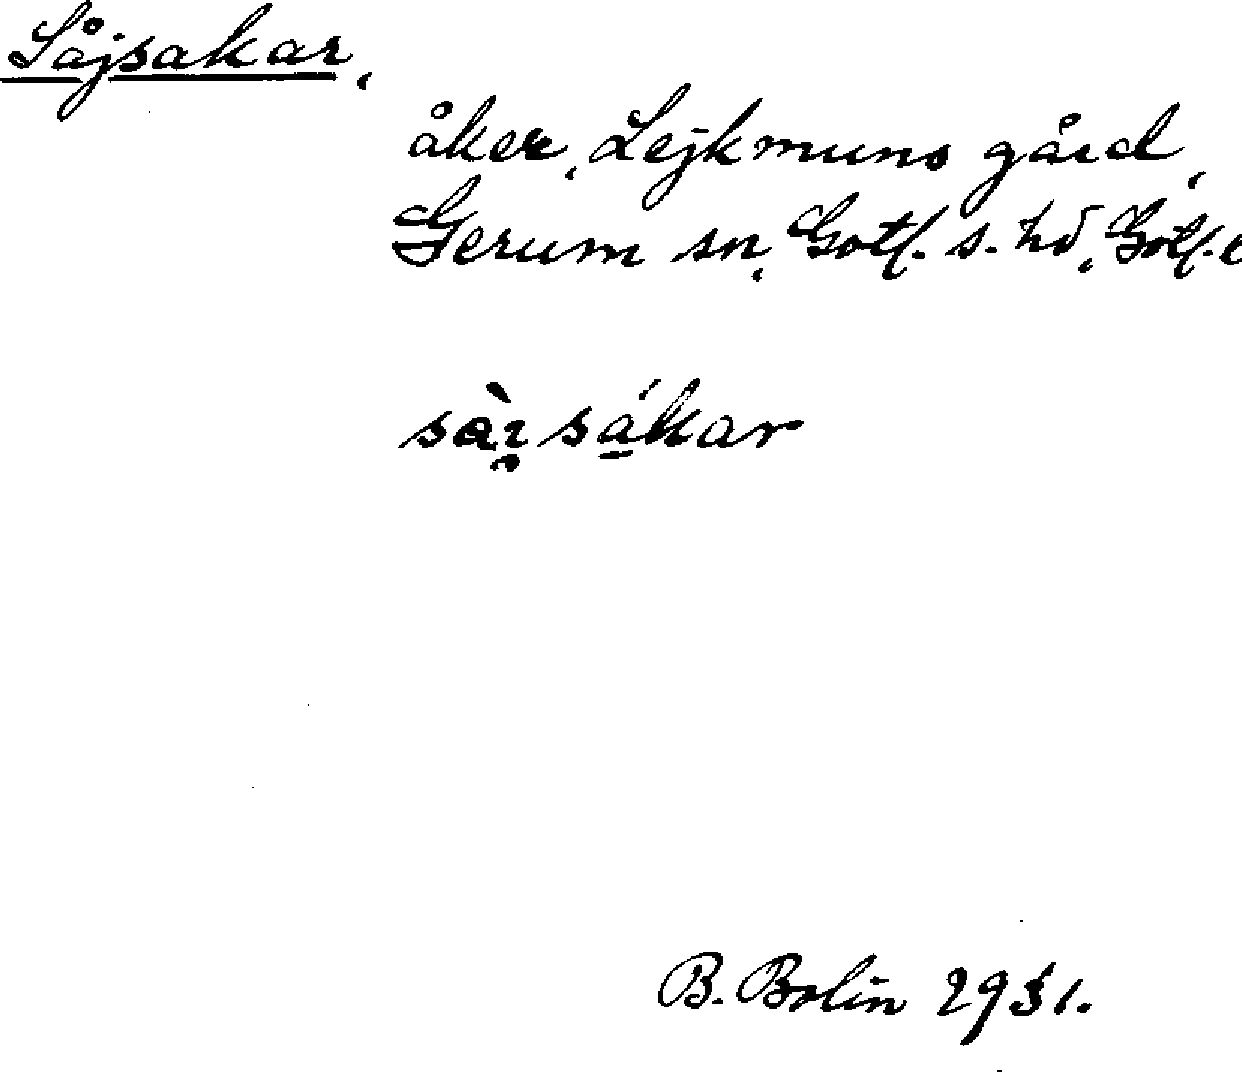 Såjsakar,
åker, Lejkmuns gård,
Gerum sn, Gotl. s. hd, Gotl.
B. Bolin